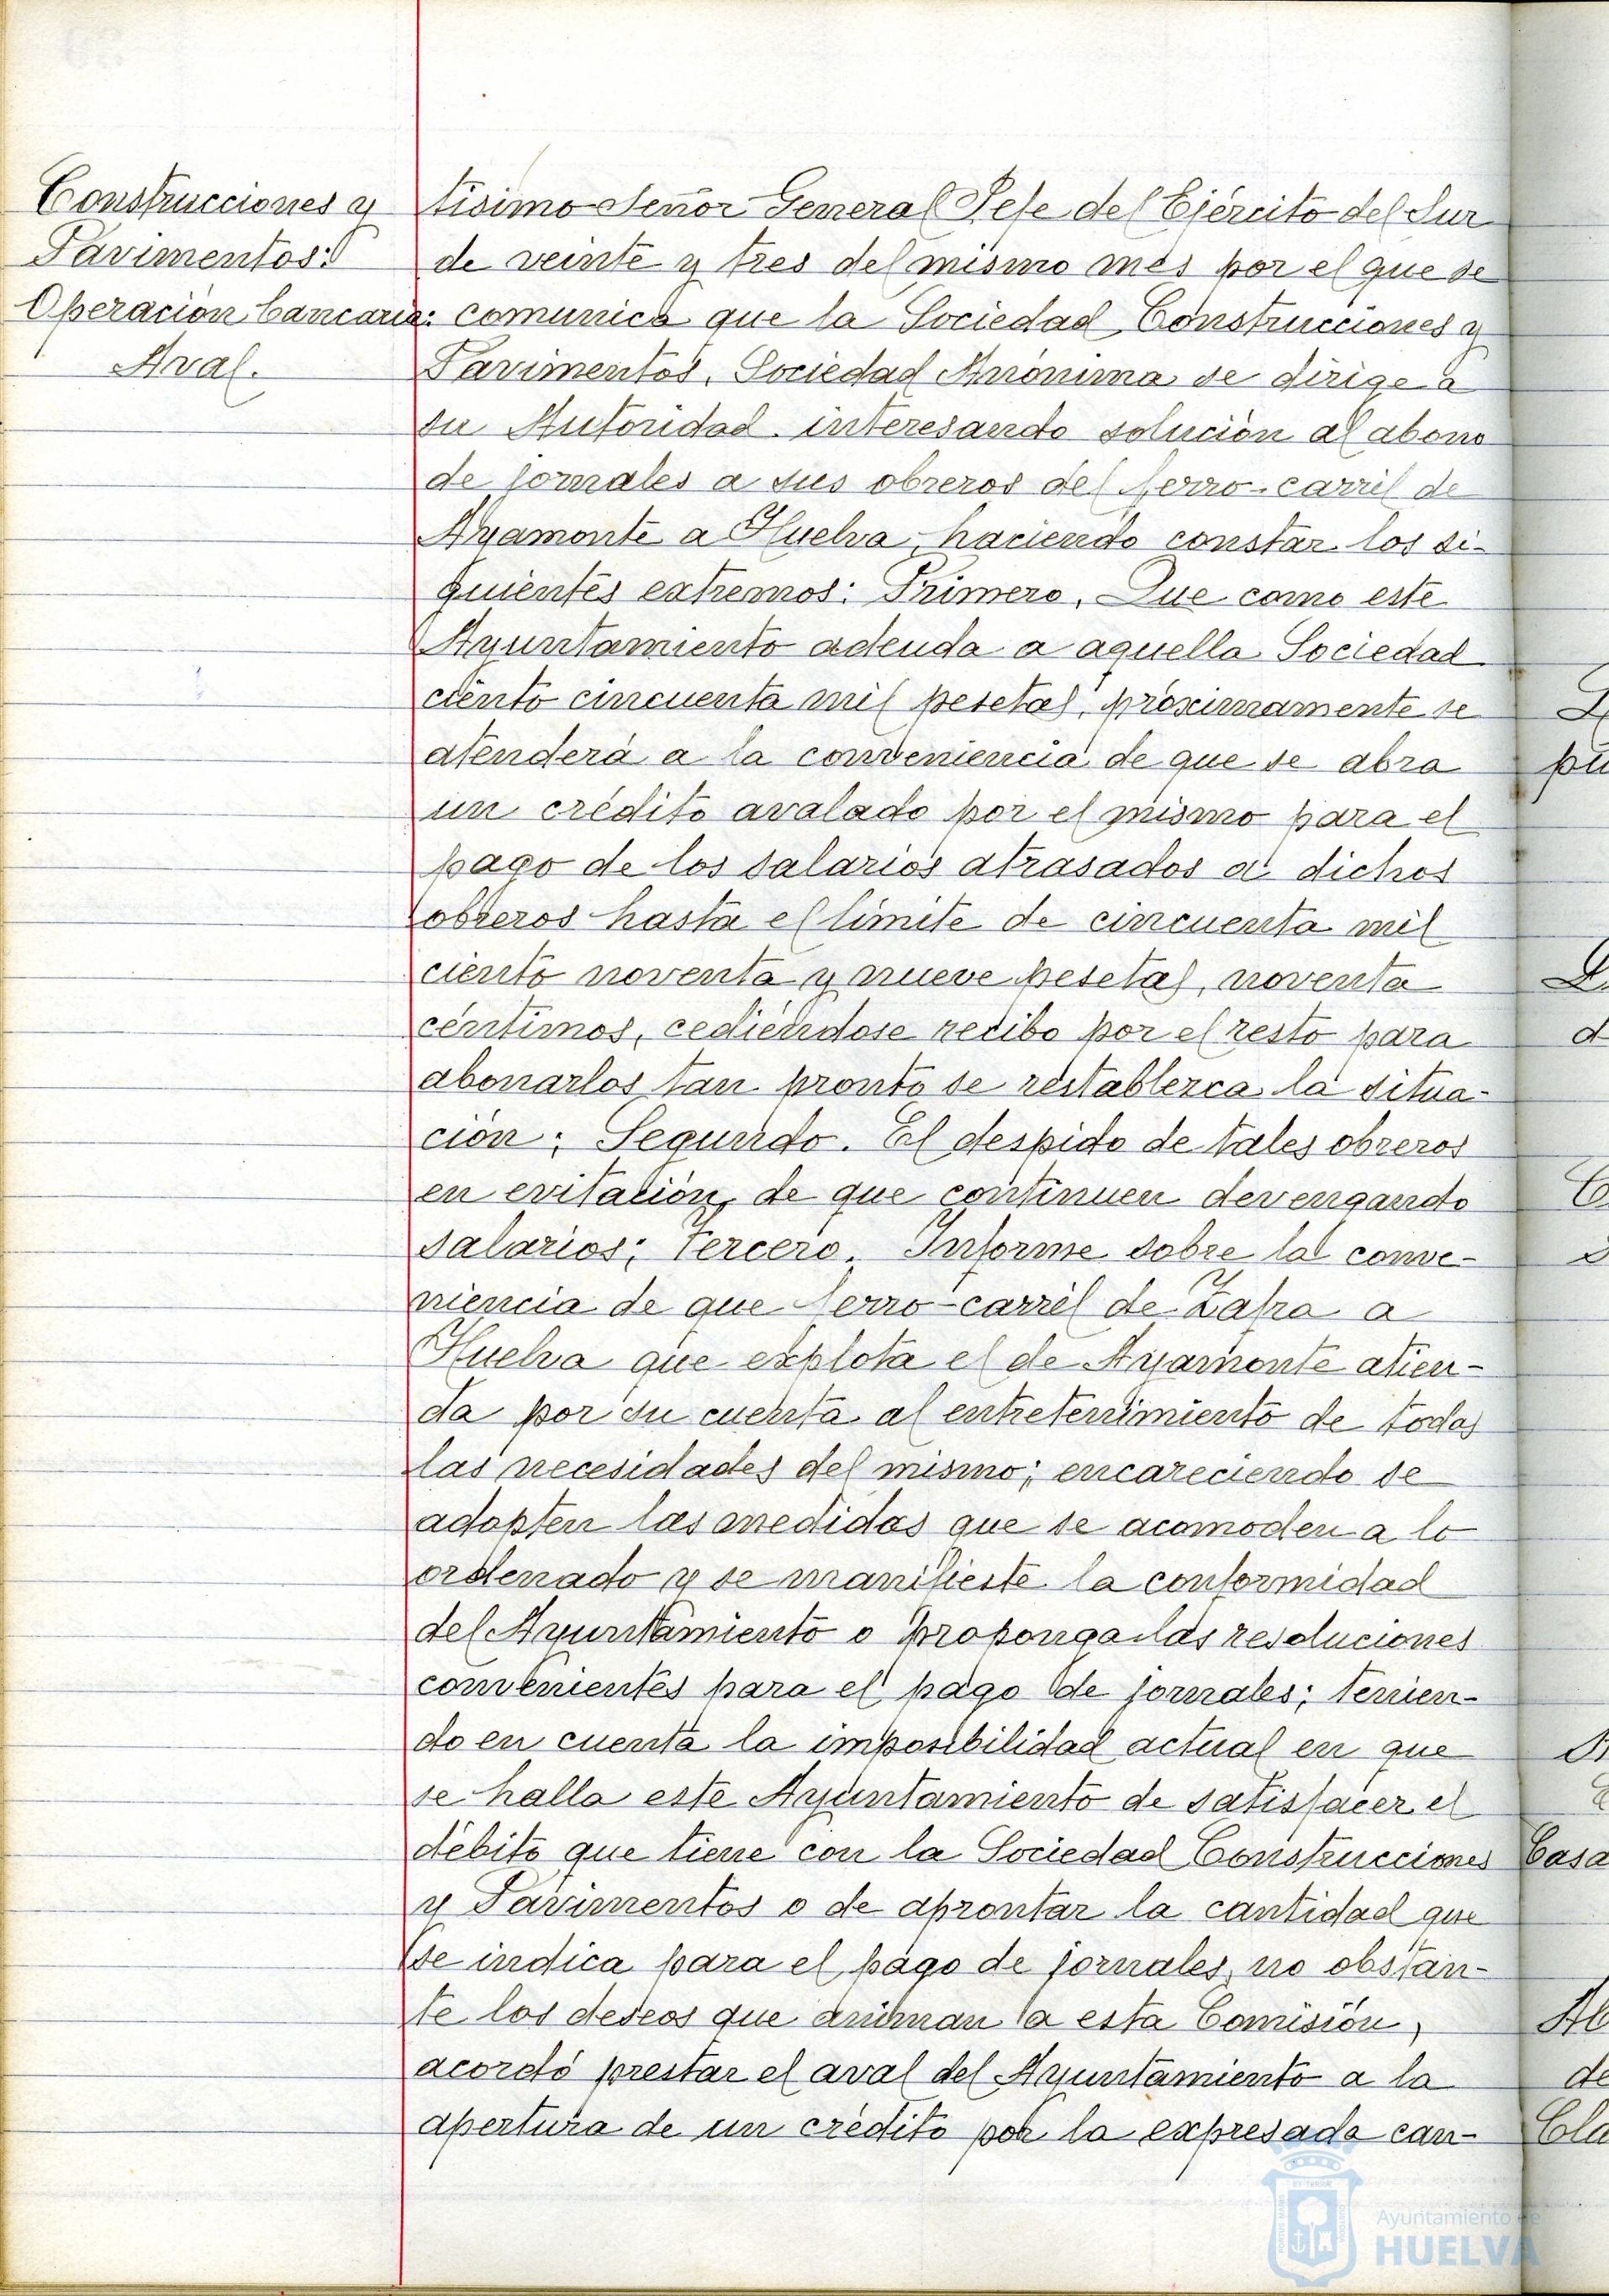 Construcciones y
Pavimentos:
Operación bancaria:
Aval.
tísimo Señor General Jefe del Ejército del Sur
de veinte y tres del mismo mes por el que se
comunica que la Sociedad Construcciones y
Pavimentos, Sociedad Anónima se dirige a
su Autoridad interesando solución al abono
de jornales a sus obreros del ferro-carril de
Ayamonte a Huelva, haciendo constar los si-
guientes extremos: Primero. Que como este
Ayuntamiento adeuda a aquella Sociedad
ciento cincuenta mil pesetas, próximamente se
atenderá a la conveniencia de que se abra
un crédito avalado por el mismo para el
pago de los salarios atrasados a dichos
obreros hasta el límite de cincuenta mil
ciento noventa y nueve pesetas, noventa
céntimos, cediéndose recibo por el resto para
abonarlos tan pronto se restablezca la situa-
ción; Segundo. El despido de tales obreros
en evitación, de que continuen devengando
salarios; Tercero. Informe sobre la conve-
niencia de que ferro-carril de Zafra a
Huelva que explota el de Ayamonte atien-
da por su cuenta al entretenimiento de todas
las necesidades del mismo; encareciendo se
adopten las medidas que se acomoden a lo
ordenado y se manifieste la conformidad
del Ayuntamiento o proponga las resoluciones
convenientes para el pago de jornales; tenien-
do en cuenta la imposibilidad actual en que
se halla este Ayuntamiento de satisfacer el
débito que tiene con la Sociedad Construcciones
y Pavimentos o de aprontar la cantidad que
se indica para el pago de jornales, no obstan-
te los deseos que animan a esta Comisión,
acordó prestar el aval del Ayuntamiento a la
apertura de un crédito por la expresada can-
pu
Casa
de
Cla
Ayuntamiento de
HUELVA